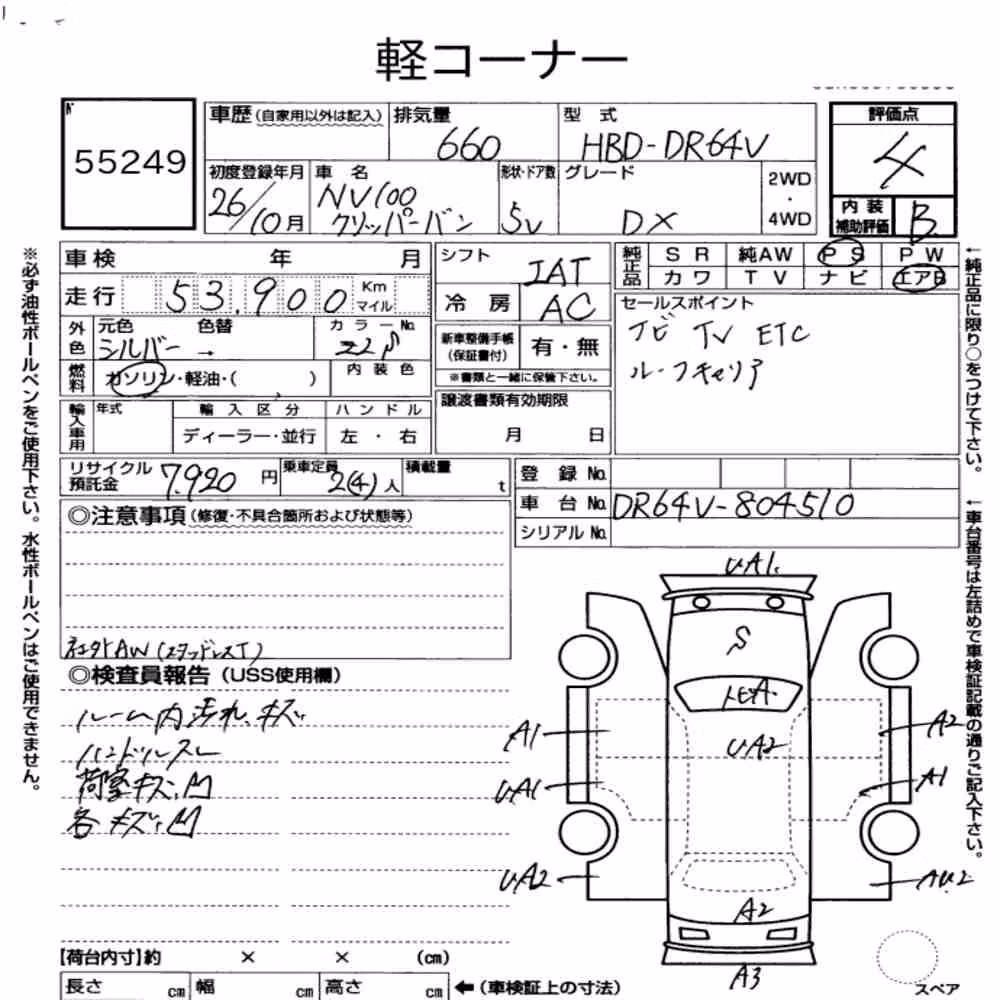 軽コーナー
№
55249
車歴(自家用以外は記入)
排気量
660
型 式
HBD-DR64V
評価点
4
内 装
補助評価
B
初度登録年月
26/10月
車 名
NV100
クリッパーバン
形状・ドア数
5V
グレード
DX
2WD
・
4WD
車検 年 月
走行 53,900 Km
マイル
外色
元色 色替 カラーNo.
シルバー →
燃料 ガソリン・軽油・( )
内装色
輸入車用
年式 輸入区分 ハンドル
ディーラー・並行 左・右
シフト
IAT
冷房 AC
新車整備手帳
(保証書付)
有・無
※書類と一緒に保管下さい。
譲渡書類有効期限
月 日
純正品
SR 純AW PS PW
カワ TV ナビ エアB
セールスポイント
ナビ TV ETC
ルーフキャリア
リサイクル
預託金
7,920円
乗車定員
2(4)人
積載量
t
登録No.
車台No. DR64V-804510
シリアルNo.
◎注意事項(修復・不具合箇所および状態等)
社外AW(スタッドレスT)
◎検査員報告(USS使用欄)
ルーム内汚れ、キズ
ハンドルスレ
荷室キズ、凹
各キズ、凹
UA1
S
トビA
UA2
A1
UA1
UA2
A2
A1
AU2
A2
A3
スペア
【荷台内寸】約 × × (cm)
長さ cm 幅 cm 高さ cm ←(車検証上の寸法)
※必ず油性ボールペンをご使用下さい。水性ボールペンはご使用できません。
←純正品に限り○をつけて下さい。
←車台番号は左詰めで車検証記載の通りご記入下さい。